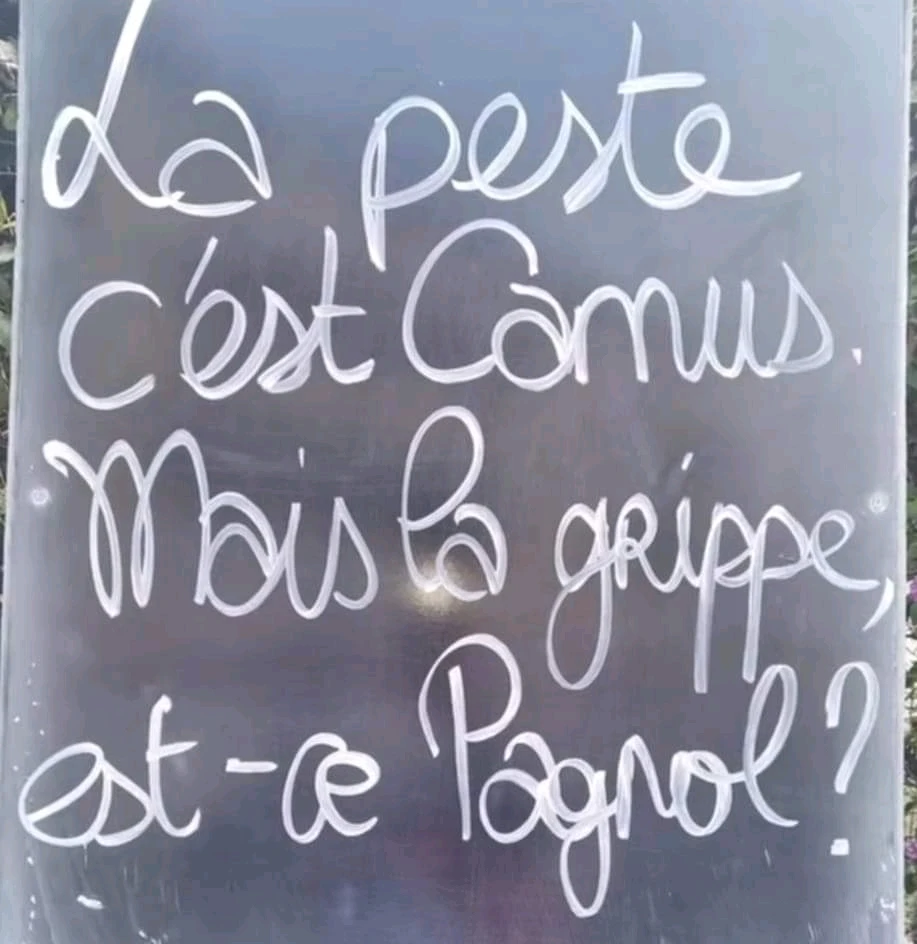 La peste
c'est Camus.
Mais la grippe,
est-ce Pagnol ?